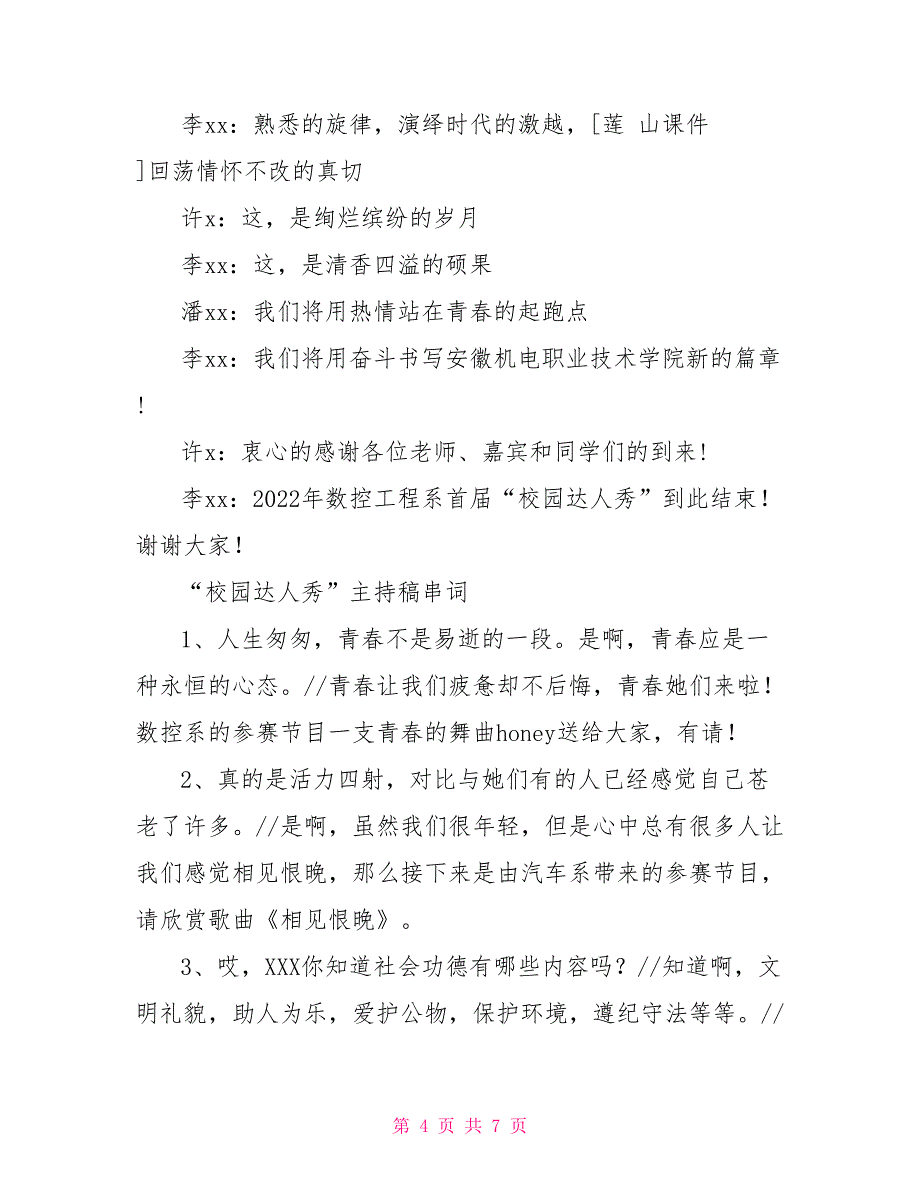 李xx：熟悉的旋律，演绎时代的激越，[莲 山课件
]回荡情怀不改的真切
许x：这，是绚烂缤纷的岁月
李xx：这，是清香四溢的硕果
潘xx：我们将用热情站在青春的起跑点
李xx：我们将用奋斗书写安徽机电职业技术学院新的篇章
！
许x：衷心的感谢各位老师、嘉宾和同学们的到来！
李xx：2022年数控工程系首届“校园达人秀”到此结束！
谢谢大家！
“校园达人秀”主持稿串词
1、人生匆匆，青春不是易逝的一段。是啊，青春应是一
种永恒的心态。//青春让我们疲惫却不后悔，青春她们来啦！
数控系的参赛节目一支青春的舞曲honey送给大家，有请！
2、真的是活力四射，对比与她们有的人已经感觉自己苍
老了许多。//是啊，虽然我们很年轻，但是心中总有很多人让
我们感觉相见恨晚，那么接下来是由汽车系带来的参赛节目，
请欣赏歌曲《相见恨晚》。
3、哎，XXX你知道社会功德有哪些内容吗？//知道啊，文
明礼貌，助人为乐，爱护公物，保护环境，遵纪守法等等。//
第 4 页 共 7 页